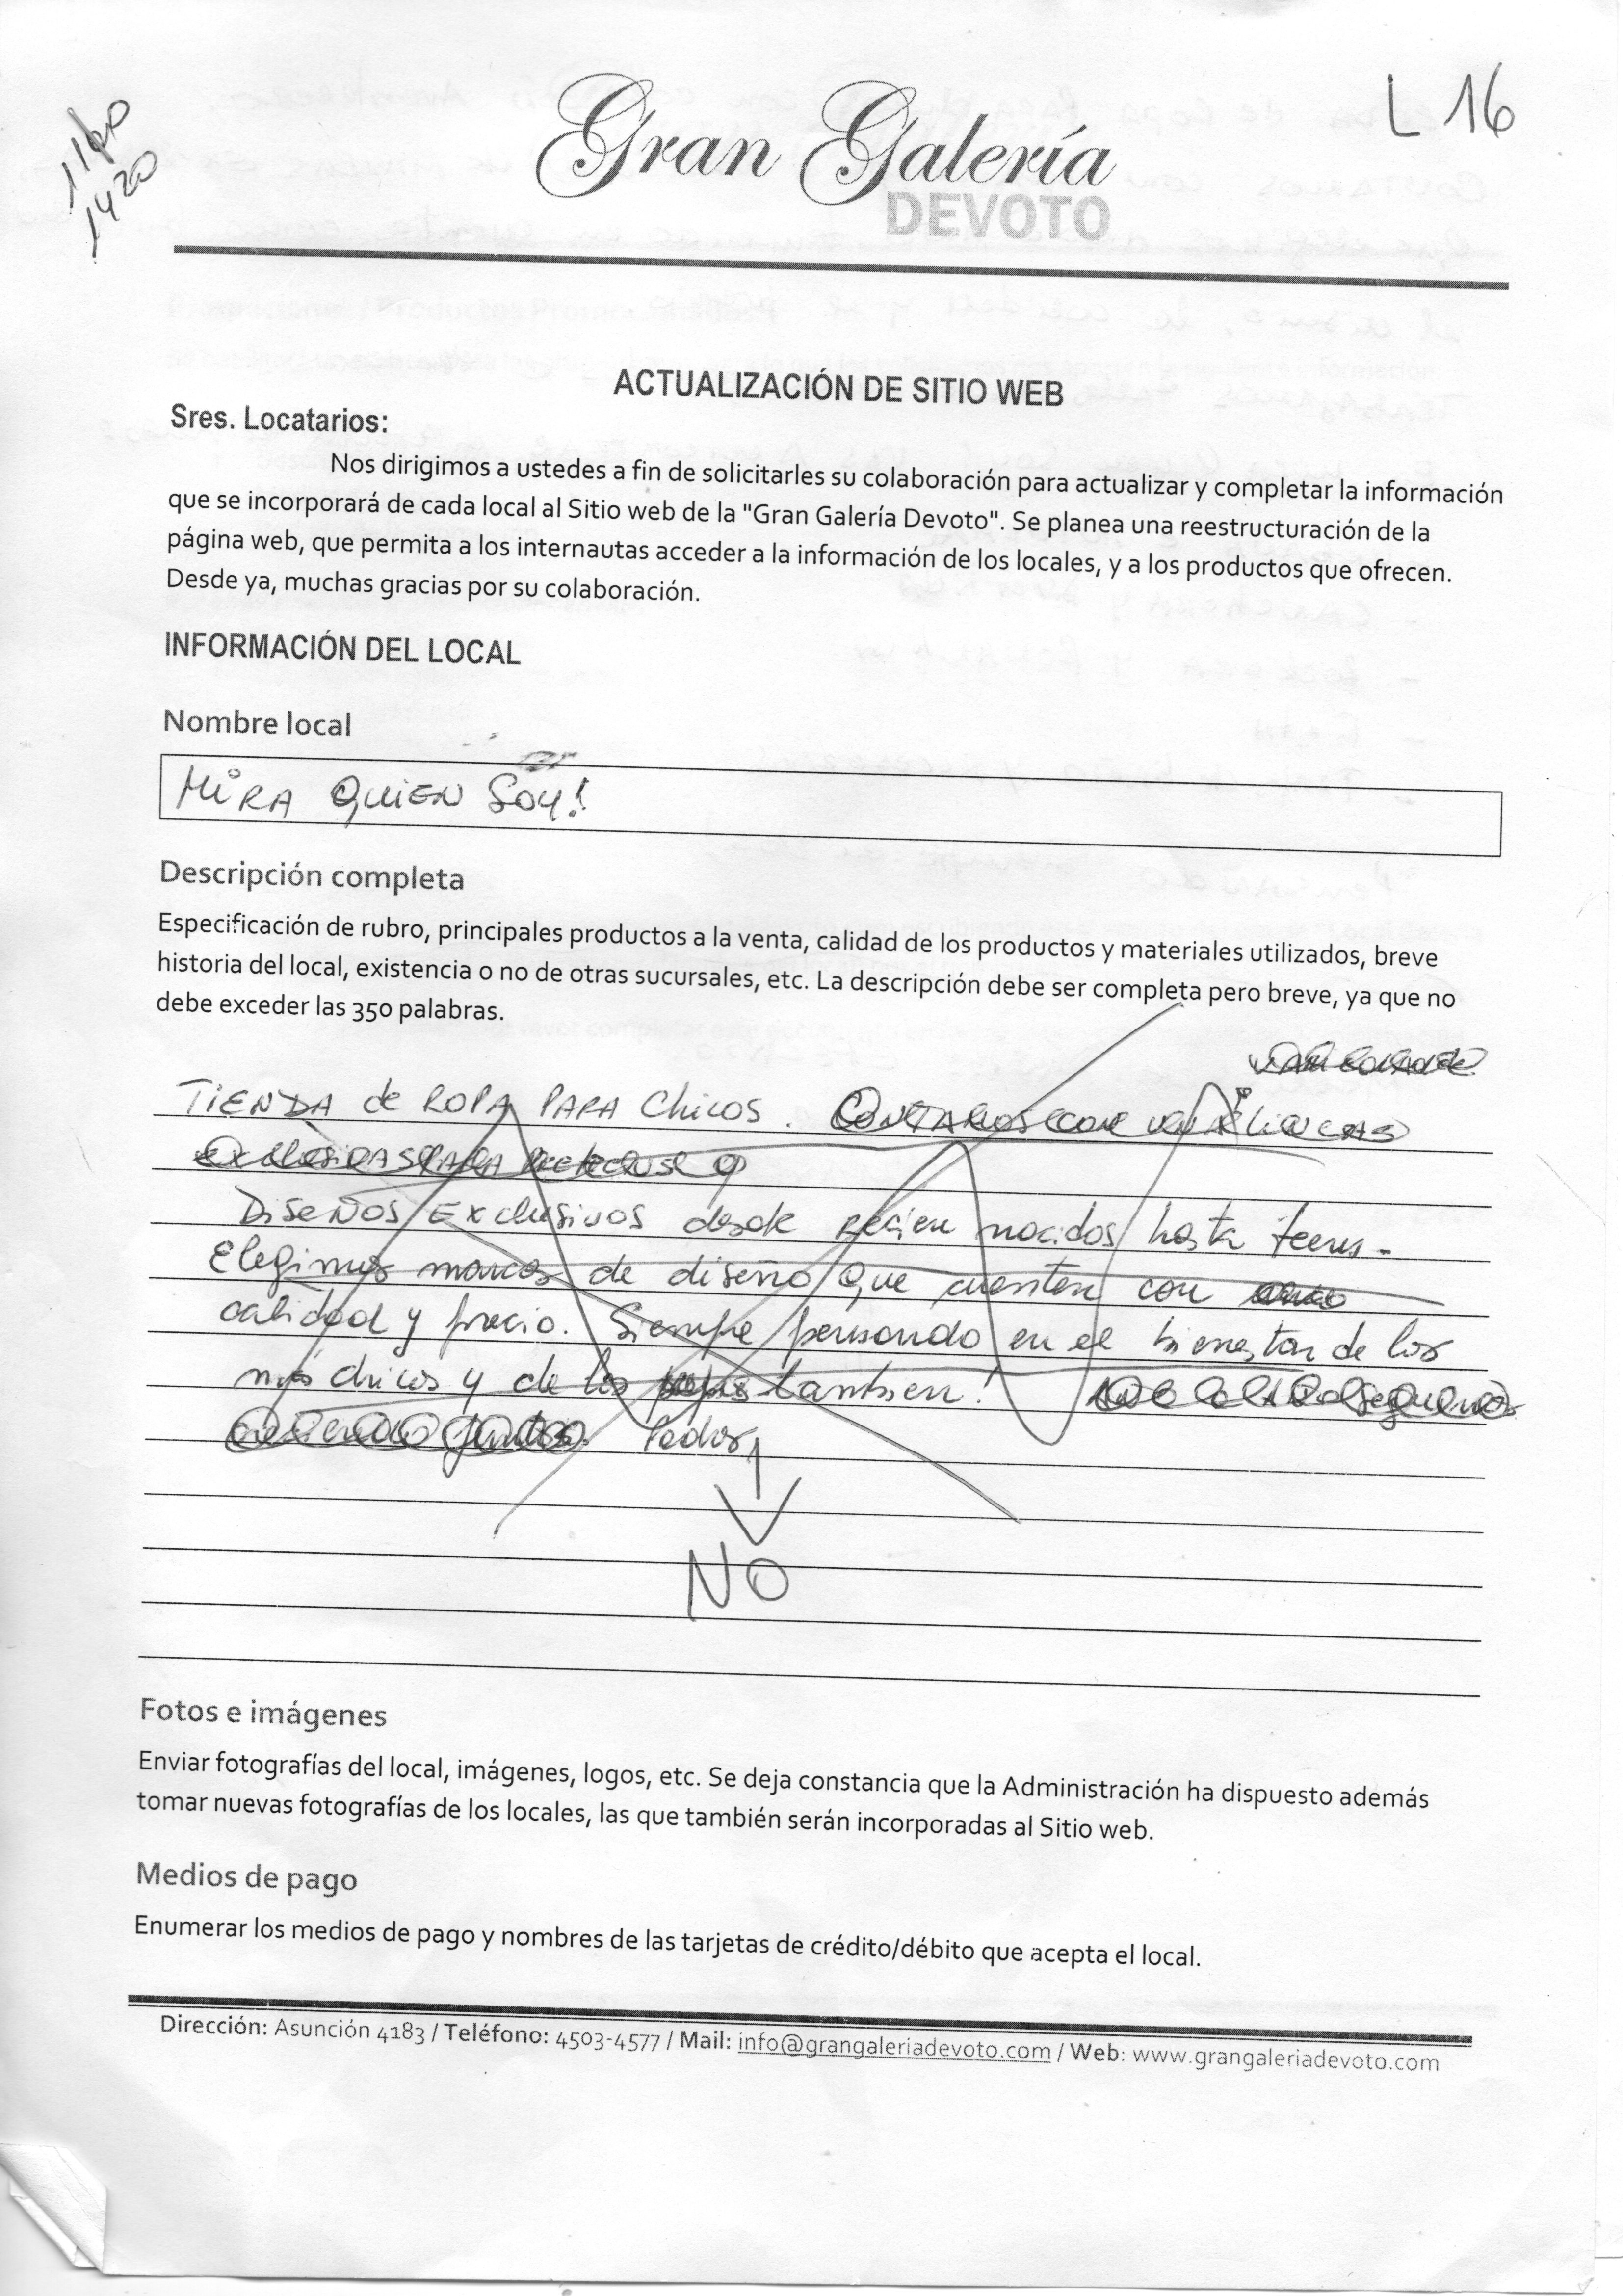 L 16
1420
Gran Galería
DEVOTO
ACTUALIZACIÓN DE SITIO WEB
Sres. Locatarios:
Nos dirigimos a ustedes a fin de solicitarles su colaboración para actualizar y completar la información
que se incorporará de cada local al Sitio web de la "Gran Galería Devoto". Se planea una reestructuración de la
página web, que permita a los internautas acceder a la información de los locales, y a los productos que ofrecen.
Desde ya, muchas gracias por su colaboración.
INFORMACIÓN DEL LOCAL
Nombre local
MiRA QUIEN SOY!
Descripción completa
Especificación de rubro, principales productos a la venta, calidad de los productos y materiales utilizados, breve
historia del local, existencia o no de otras sucursales, etc. La descripción debe ser completa pero breve, ya que no
debe exceder las 350 palabras.
TIENDA de ROPA PARA Chicos. CONTAMOS con
Diseños Exclusivos desde recien nacidos hasta teens-
Elegimos marcas de diseño que cuenten con
calidad y precio. Siempre pensando en el bienestar de los
más chicos y de los papis tambien!
Padres
NO
Fotos e imágenes
Enviar fotografías del local, imágenes, logos, etc. Se deja constancia que la Administración ha dispuesto además
tomar nuevas fotografías de los locales, las que también serán incorporadas al Sitio web.
Medios de pago
Enumerar los medios de pago y nombres de las tarjetas de crédito/débito que acepta el local.
Dirección: Asunción 4183 / Teléfono: 4503-4577 / Mail: info@grangaleriadevoto.com / Web: www.grangaleriadevoto.com